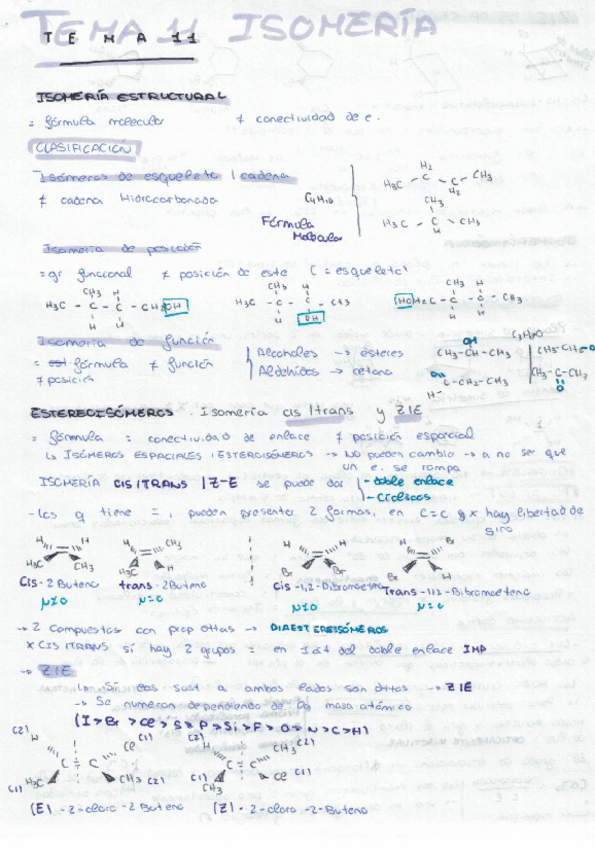 TEMA 11 ISOMERÍA
TEMA 11
ISOMERÍA ESTRUCTURAL
= fórmula molecular ≠ conectividad de e.
CLASIFICACIÓN
Isómeros de esqueleto / cadena
≠ cadena Hidrocarbonada
C4H10
Fórmula Molecular
H3C - C - C - CH3
H2 H2
CH3
H3C - C - CH3
H
Isomería de posición
= gr funcional ≠ posición de este (= esqueleto)
CH3 H
H3C - C - C - CH2OH
H H
CH3 H
H3C - C - C - CH3
H OH
CH3 H
HOH2C - C - C - CH3
H H
Isomería de función
= est fórmula ≠ función
≠ posición
Alcoholes → ésteres
Aldehídos → cetona
OH
CH3-CH-CH3
C-CH2-CH3
H-
C3H6O
CH3-CH2-O
CH3-C-CH3
O
ESTEREOISÓMEROS. Isomería cis/trans y Z/E
= fórmula = conectividad de enlace ≠ posición espacial
↳ ISÓMEROS ESPACIALES / ESTEREOISÓMEROS → NO pueden cambio → a no ser que
un e. se rompa
ISOMERÍA CIS/TRANS / Z-E se puede dar
- doble enlace
- Cíclicos
- Los q tiene = , pueden presentar 2 formas, en C=C q x hay libertad de
giro
H H
H3C CH3
H CH3
H3C H
H H
Br Br
H Br
Br H
Cis-2 Buteno
trans-2 Buteno
Cis-1,2-Dibromoeteno
Trans-1,2-Bibromoeteno
μ≠0 μ=0 μ≠0 μ=0
→ 2 Compuestos con prop dttas → DIAESTEREISÓMEROS
x CIS/TRANS sí hay 2 grupos = en 1 át del doble enlace IMP
→ Z/E
↳ Si los sust a ambos lados son dttos → Z/E
→ Se numeran dependiendo de la masa atómica
(I > Br > Cl > S > P > Si > F > O > N > C > H)
(2) H (1) Cl
C = C
(1) H3C CH3 (2)
(2) H CH3 (2)
C = C
(1) CH3 Cl (1)
(E)-2-cloro-2 Buteno
(Z)-2-cloro-2-Buteno